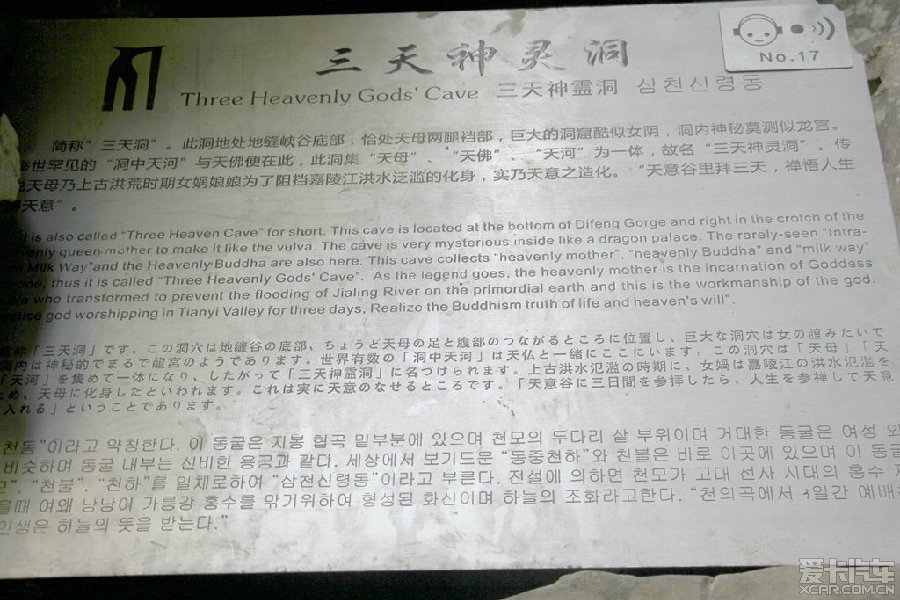 No.17
三天神灵洞
Three Heavenly Gods' Cave 三天神霊洞 삼천신령동
简称“三天洞”。此洞地处地缝峡谷底部，恰处天母两腿裆部，巨大的洞窟酷似女阴，洞内神秘莫测似龙宫。
世罕见的“洞中天河”与天佛便在此，此洞集“天母”、“天佛”、“天河”为一体，故名“三天神灵洞”。传
天母乃上古洪荒时期女娲娘娘为了阻挡嘉陵江洪水泛滥的化身，实乃天意之造化。“天意谷里拜三天，禅悟人生
天意”。
It is also called "Three Heaven Cave" for short. This cave is located at the bottom of Difeng Gorge and right in the crotch of the
queen mother to make it like the vulva. The cave is very mysterious inside like a dragon palace. The rarely-seen "Intra-
Milk Way"and the Heavenly Buddha are also here. This cave collects "heavenly mother", "heavenly Buddha" and "milk way"
thus it is called "Three Heavenly Gods' Cave". As the legend goes, the heavenly mother is the Incarnation of Goddess
who transformed to prevent the flooding of Jialing River on the primordial earth and this is the workmanship of the god.
god worshipping in Tianyi Valley for three days, Realize the Buddhism truth of life and heaven's will".
称「三天洞」です。この洞穴は地縫谷の底部、ちょうど天母の足と腹部のつながるところに位置し、巨大な洞穴は女の陰みたいで
洞内は神秘的でまるで龍宮のようであります。世界有数の「洞中天河」は天仏と一緒にここにいます。この洞穴は「天母」「天
「天河」を集めて一体になり、したがって「三天神霊洞」に名つけられます。上古洪水氾濫の時期に、女媧は嘉陵江の洪水氾濫を
め、天母に化身したといわれます。これは実に天意のなせるところです。「天意谷に三日間を参拝したら、人生を参禅して天意
入れる」ということであります。
천동”이라고 약칭한다. 이 동굴은 지봉 협곡 밑부분에 있으며 천모의 두다리 샅 부위이며 거대한 동굴은 여성
비슷하며 동굴 내부는 신비한 용궁과 같다. 세상에서 보기드문 “동중천하”와 천불은 바로 이곳에 있으며 이 동굴
“천불”, “천하”를 일체로하여 “삼천신령동”이라고 부른다. 전설에 의하면 천모가 고대 선사 시대의 홍수
을때 여왜 낭낭이 가릉강 홍수를 막기위하여 형성된 화신이며 하늘의 조화라고한다. “천의곡에서 3일간 예배
인생은 하늘의 뜻을 받는다.”
爱卡汽车
XCAR.COM.CN